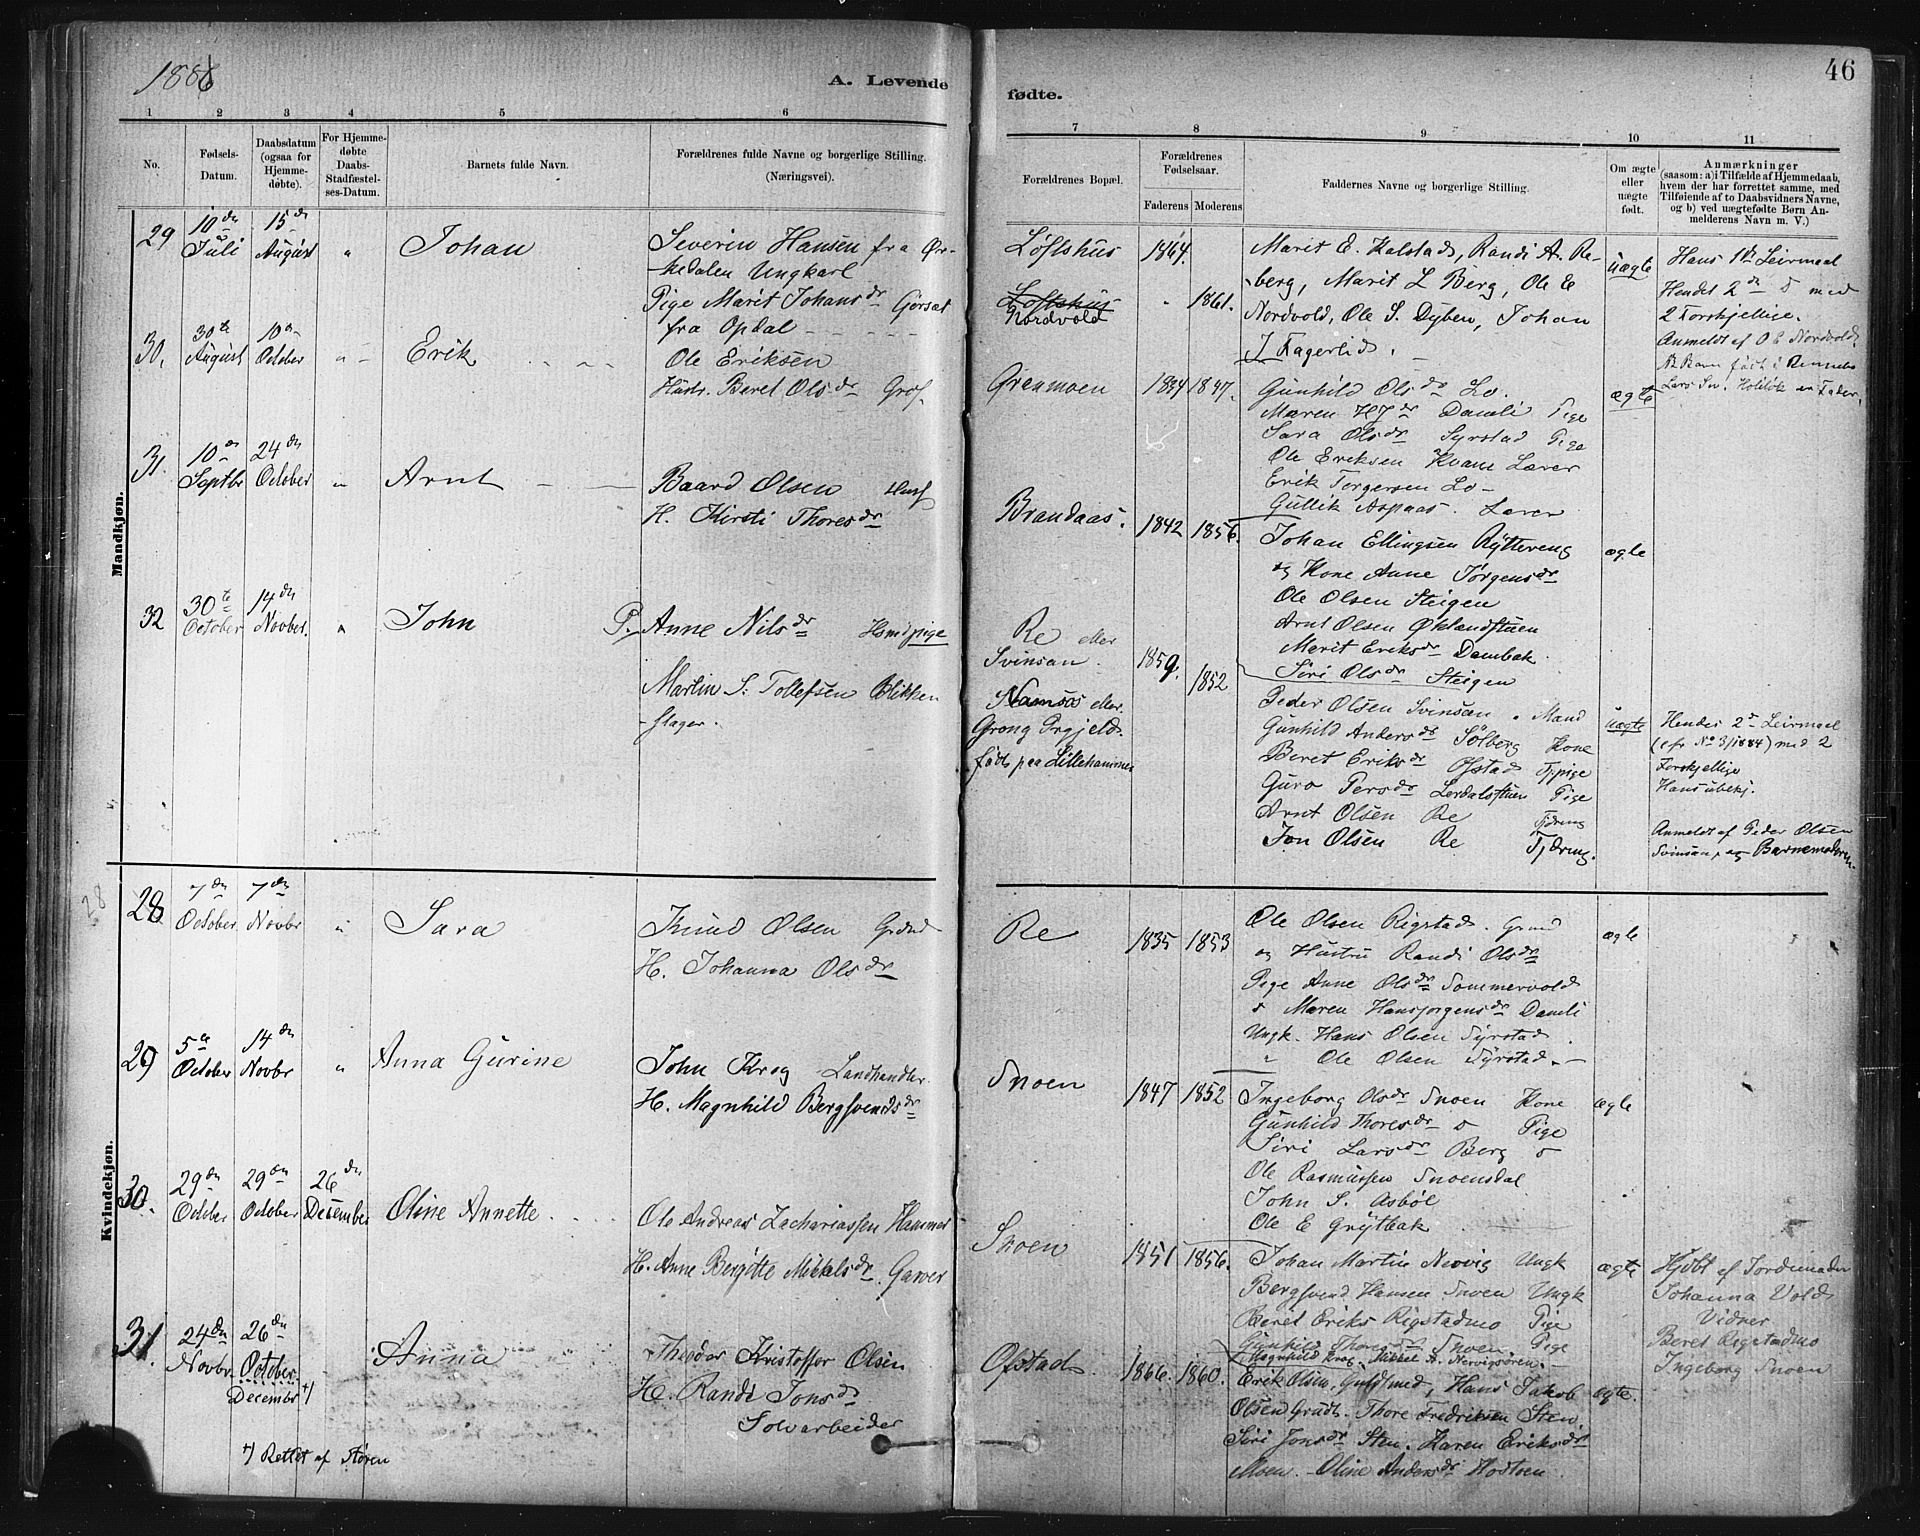 1886
A. Levende
fødte.
46
1
2
3
4
5
6
7
8
9
10
11
No.
Fødsels-
Datum.
Daabsdatum
(ogsaa for
Hjemme-
døbte).
For Hjemme-
døbte
Daabs-
Stadfæstel-
ses-Datum.
Barnets fulde Navn.
Forældrenes fulde Navne og borgerlige Stilling.
(Næringsvei).
Forældrenes Bopæl.
Forældrenes
Fødselsaar.
Faderens
Moderens
Faddernes Navne og borgerlige Stilling.
Om ægte
eller
uægte
født.
Anmærkninger
(saasom: a) i Tilfælde af Hjemmedaab,
hvem der har forrettet samme, med
Tilføiende af to Daabsvidners Navne,
og b) ved uægtefødte Børn An-
melderens Navn m. V.)
Mandkjøn.
29
10de
Juli
15de
August
"
Johan
Severin Hansen fra Ør-
kedalen Ungkarl
Pige Marit Johansdr Gørset
fra Opdal
Løftshus
1864.
Løftshus
Nordvold
" 1861.
Marit E. Kalstad, Randi A. Re-
berg, Marit L Berg, Ole E
Nordvold, Ole S. Dyben, Johan
J Fagerlid.
uægte
Hans 1ste Leirmaal
Hendes 2de do med
2 Forskjellige.
Anmeldt af O E Nordvold
30.
30te
August
10de
October
"
Erik
Ole Eriksen
Hust. Beret Olsdr
Grenmoen
1834
1847.
Gunhild Olsdr Lo.
Maren HJdr Damli Pige
Sara Olsdr Syrstad Pige
Ole Eriksen Kvame Lærer
Erik Torgersen Lo
Gullik Aspaas. Lærer
ægte
31.
10de
Septbr
24de
October
"
Arnt
Baard Olsen
H. Kirsti Thoresdr
Brandaas.
1842
1856.
Johan Ellingsen Ryttereng
og Kone Anne Jørgensdr
Ole Olsen Steigen
Arnt Olsen Øklandstuen
Marit Eriksdr Dambak
Siri Olsdr Steigen
ægte
32
30te
October
14de
Novber.
"
John
P. Anne Nilsdr
Martin S. Tollefsen Blikken
slager.
Re eller
Svinsaa
Namsos eller
Grong Prgjeld
født paa Lillehammer
1859.
1852
Peder Olsen Svinsaa, Mand
Gunhild Andersdr Solberg Kone
Beret Eriksdr Ofstad Tjpige
Guro Persdr Lerdalsstuen Pige
Arnt Olsen Re Tjdreng
Jon Olsen Re Tjdreng.
uægte
Hendes 2de Leirmaal
(cfr No 3/1884) med 2
Forskjellige
Hans ubekj.
Anmeldt af Peder Olsen
Svinsaa, og Barnemoderen.
Kvindekjøn.
28
28
7de
October
7de
Novbr
"
Sara
Knud Olsen
H. Johanna Olsdr
Re
1835
1853
Ole Olsen Rigstad. Grmd
og Hustru Randi Olsdr
Pige Anne Olsdr Sommervold
do Maren Hansjorgensdr Damli
Ungk. Hans Olsen Syrstad
" Ole Olsen Syrstad
ægte
29
5te
October
14de
Novbr
"
Anna Gurine
John Krog Landhandler
H. Magnhild Bergsvendsdr
Snoen
1847
1852
Ingeborg Olsdr Snoen Kone
Gunhild Thoresdr do Pige
Siri Larsdr Berg do
Ole Rasmussen Snoensdal
John S. Asbøl
Ole E Grytbak
ægte
30.
29de
October
29de
October
26de
Desember
Oline Annette
Ole Andreas Zachariassen Hammer
H. Anne Bergitte Mikkelsdr. Garver
Snoen
1851
1856.
Johan Martin Nervig Ungk
Bergsvend Hansen Snoen Ungk
Beret Eriks Rigstadmo Pige
Gunhild Thoresdr Snoen Pige
Magnhild Krog. Mikkel A. Nervigsøren.
ægte
Hjdbt af Jordemoder
Johanna Vold
Vidner
Beret Rigstadmo
Ingeborg Snoen
31.
24de
Novbr
26de
October
Decembr +)
Anna
Theodor Kristoffer Olsen
H. Randi Jonsdr
Solvarbeider
Ofstad
1866.
1860.
Erik Olsen, Guldsmed, Hans Jakob
Olsen Grudt. Thore Fredriksen Sten.
Siri Jonsdr Sten. Karen Eriksdr
Moen. Oline Andersdr Hoston.
ægte.
+) Rettet af Støren